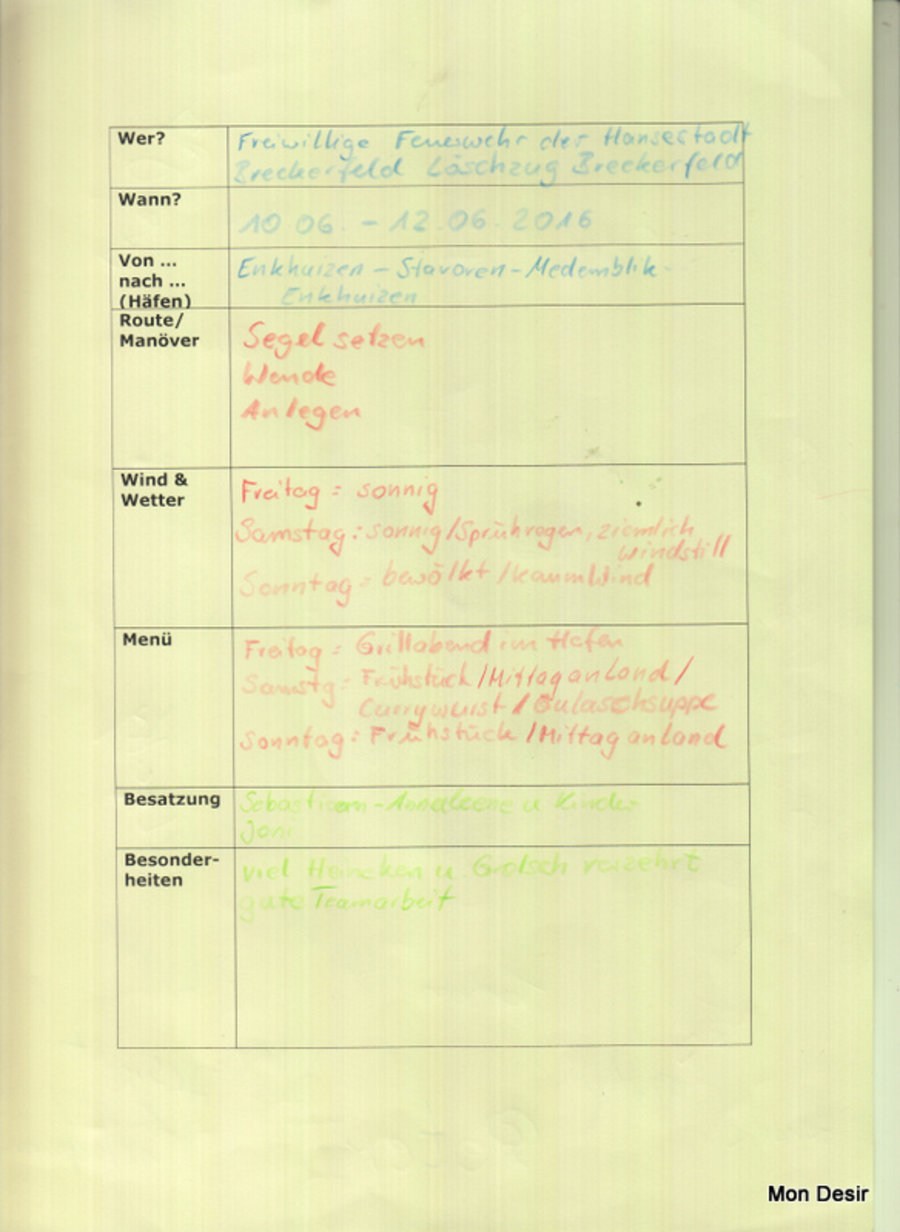 Wer?
Freiwillige Feuerwehr der Hansestadt
Breckerfeld Löschzug Breckerfeld
Wann?
10.06. - 12.06.2016
Von ...
nach ...
(Häfen)
Enkhuizen - Stavoren - Medemblik -
Enkhuizen
Route/
Manöver
Segel setzen
Wende
Anlegen
Wind &
Wetter
Freitag = sonnig
Samstag: sonnig/Sprühregen, ziemlich
windstill
Sonntag = bewölkt / kaum Wind
Menü
Freitag = Grillabend im Hafen
Samstg = Frühstück/Mittag an Land/
Currywurst/Gulaschsuppe
Sonntag = Frühstück/Mittag an Land
Besatzung
Sebastiaan - u Kinder
Besonder-
heiten
viel Heineken u Grolsch verzehrt
gute Teamarbeit
Mon Desir